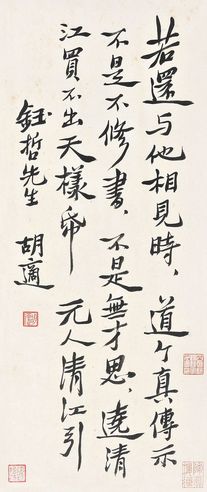 若還与他相見時、道个真傳示
不是不修書、不是無才思、遶清
江買不出天樣帋 元人清江引
鈺哲先生 胡適